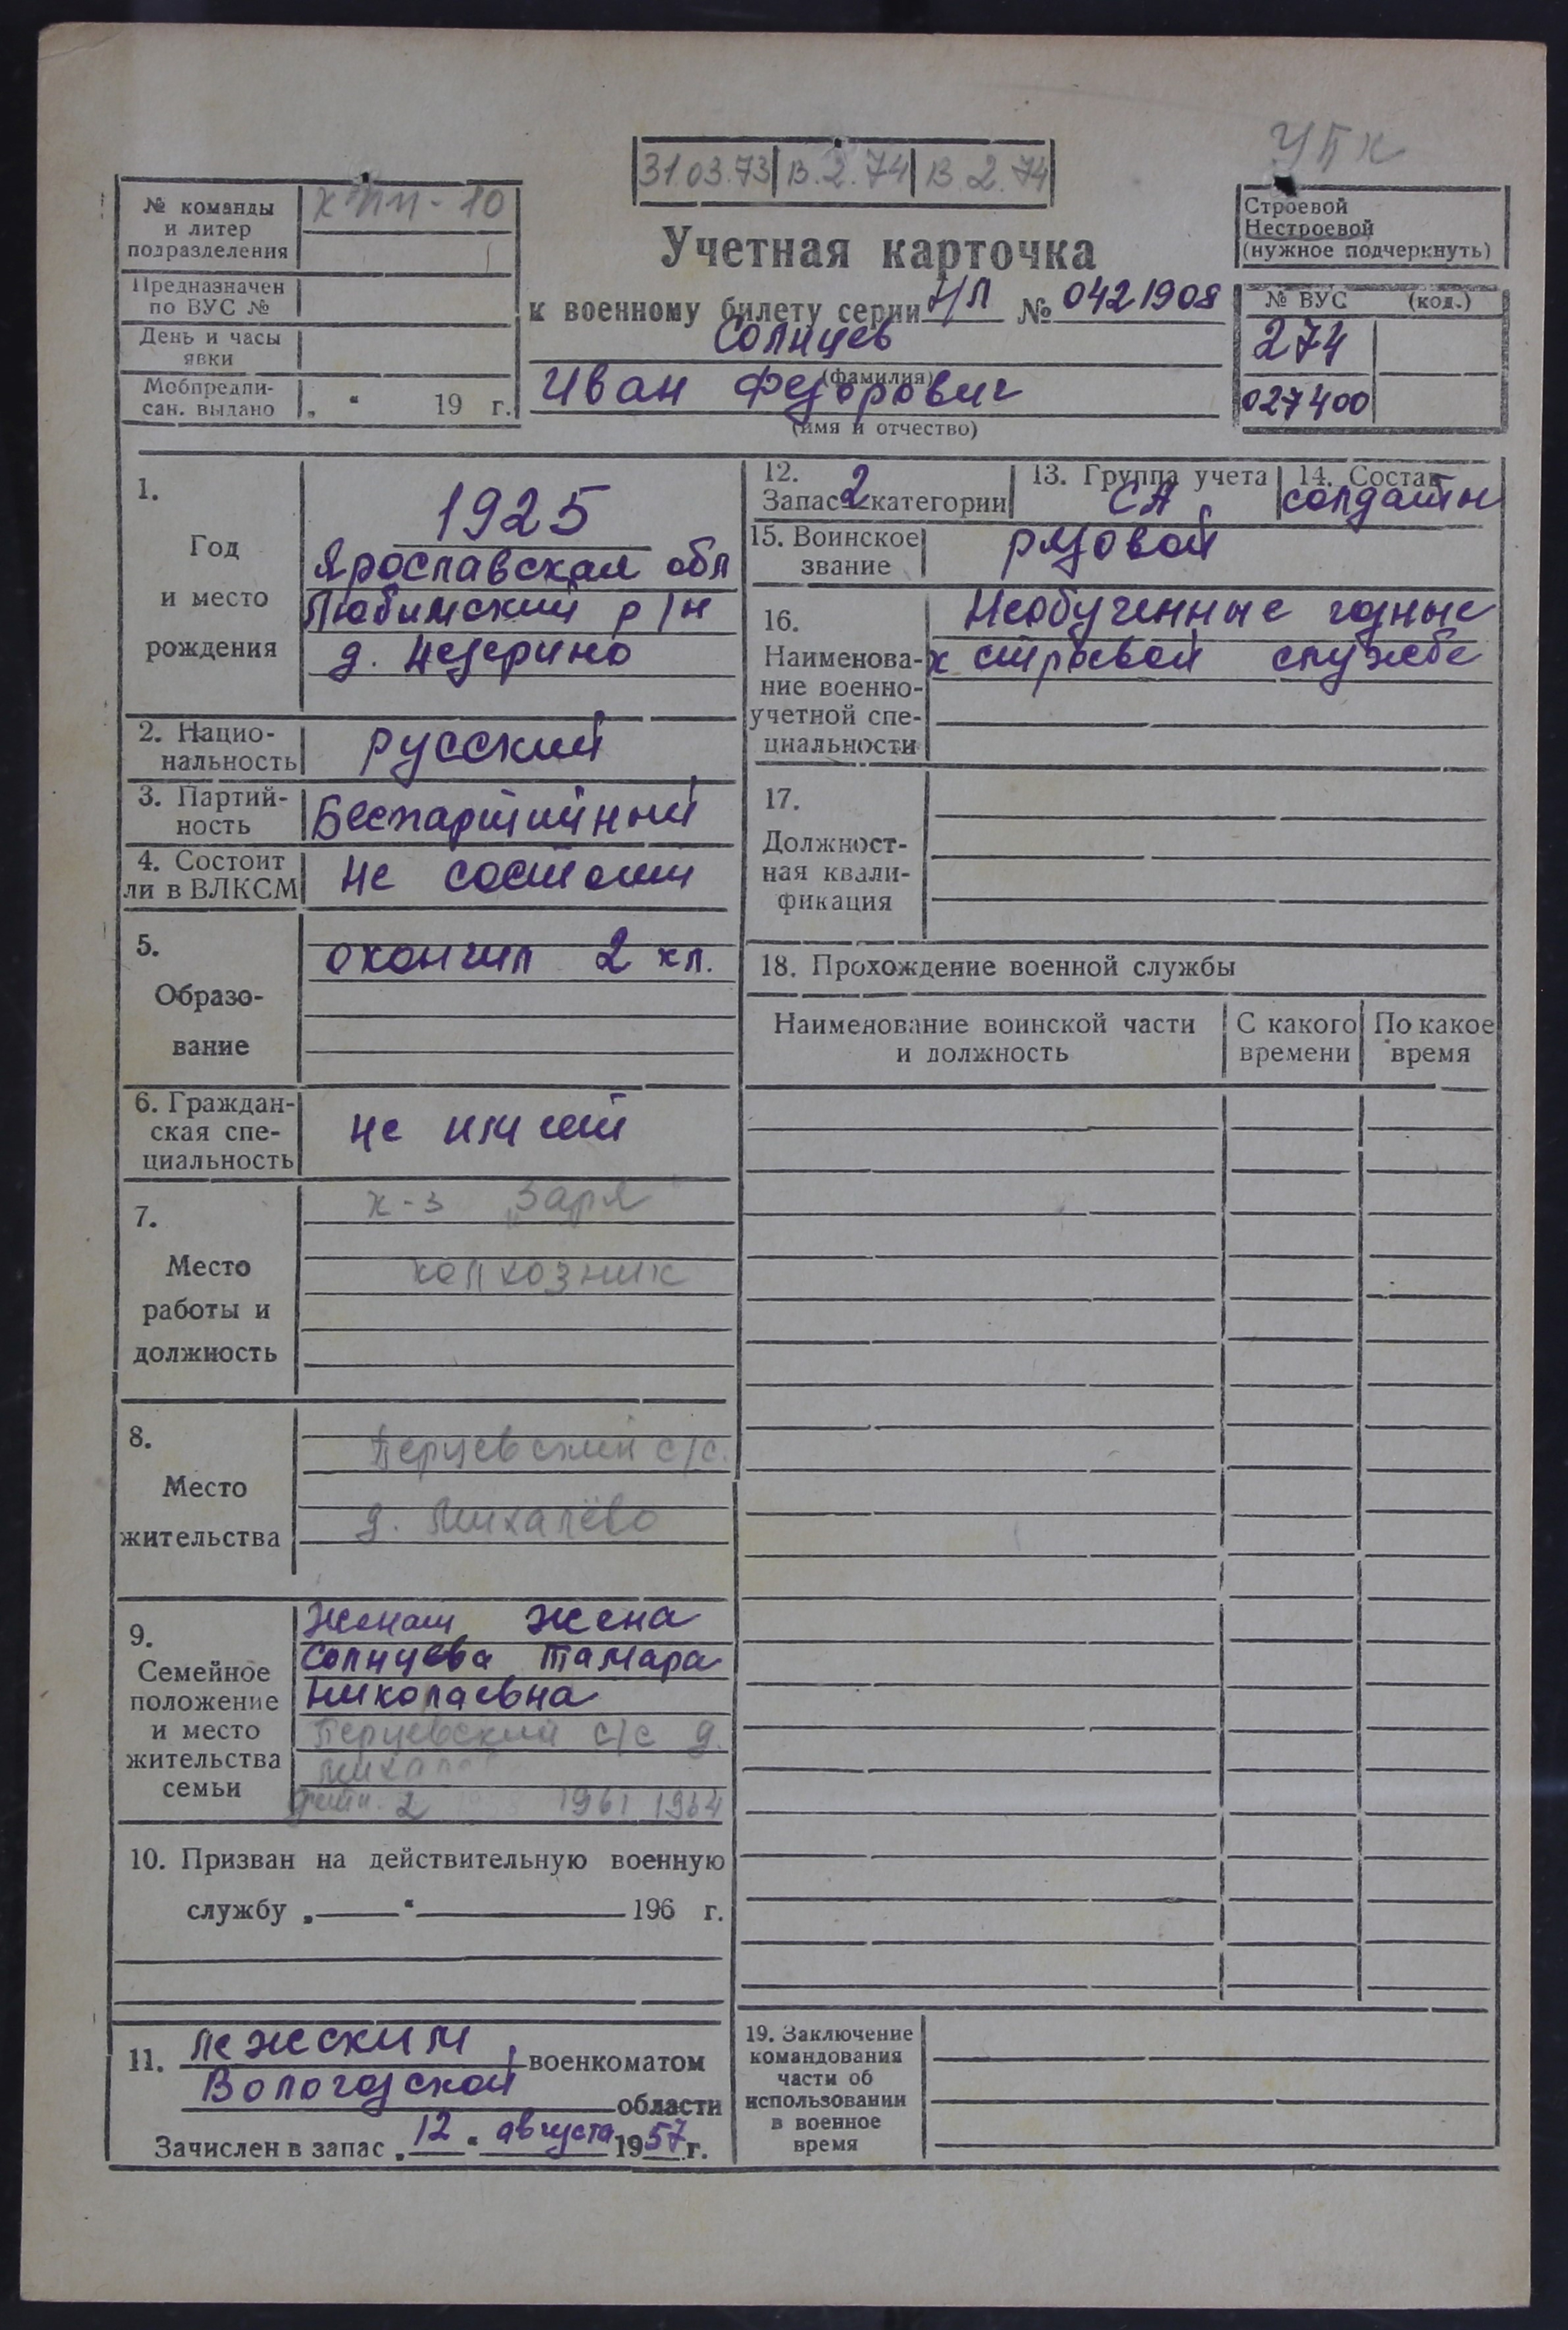 УПК
31.03.73 В.2.74 В.2.74
№ команды
и литер
подразделения
Предназначен
по ВУС №
День и часы
явки
Мобпредпи-
сан. выдано „ “ 19 г.
Строевой
Нестроевой
(нужное подчеркнуть)
Учетная карточка
к военному билету серии НЛ № 0421908
Солнцев
(фамилия)
Иван Федорович
(имя и отчество)
№ ВУС (код.)
274
027400
1.
Год
и место
рождения
1925
Ярославская обл
Любимский р/н
2. Нацио-
нальность
русский
3. Партий-
ность
Беспартийный
4. Состоит
ли в ВЛКСМ
не состоит
5.
Образо-
вание
окончил 2 кл.
6. Граждан-
ская спе-
циальность
не имеет
7.
Место
работы и
должность
к-з „Заря"
колхозник
8.
Место
жительства
Перцевский с/с.
д. Михалёво
9.
Семейное
положение
и место
жительства
семьи
женат жена
Солнцева Тамара
Николаевна
Перцевский с/с д.
дети. 2 1961 1964
10. Призван на действительную военную
службу „ “ 196 г.
11. Лежским военкоматом
Вологодской области
Зачислен в запас „12“ августа 1957 г.
12.
Запас 2 категории
13. Группа учета
СА
14. Состав
солдаты
15. Воинское
звание
рядовой
16.
Наименова-
ние военно-
учетной спе-
циальности
Необученные годные
к строевой службе
17.
Должност-
ная квали-
фикация
18. Прохождение военной службы
Наименование воинской части
и должность
С какого
времени
По какое
время
19. Заключение
командования
части об
использовании
в военное
время